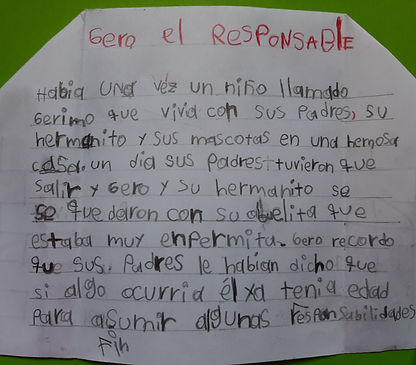 Gero el RESPONSABLE
Habia UNA vez un niño llamado
Gerimo que vivia con sus padres, su
hermanito y sus mascotas en una hemosa
casa. un dia sus Padres tuvieron que
Salir y Gero y su hermanito se
se quedaron con su abuelita que
estaba muy enfermita. Gero recordo
que sus. Padres le habian dicho que
si algo ocurria él ya tenia edad
para asumir algunas responsabilidades
Fin